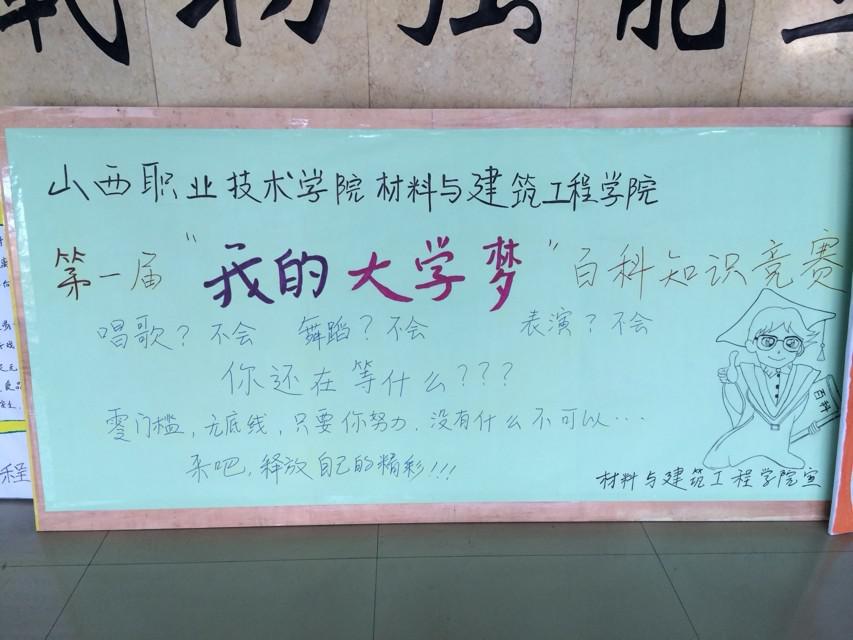 山西职业技术学院材料与建筑工程学院
第一届“我的大学梦”百科知识竞赛
唱歌？不会 舞蹈？不会 表演？不会
你还在等什么？？？
零门槛，无底线，只要你努力，没有什么不可以……
来吧，释放自己的精彩!!!
百科
材料与建筑工程学院宣
程